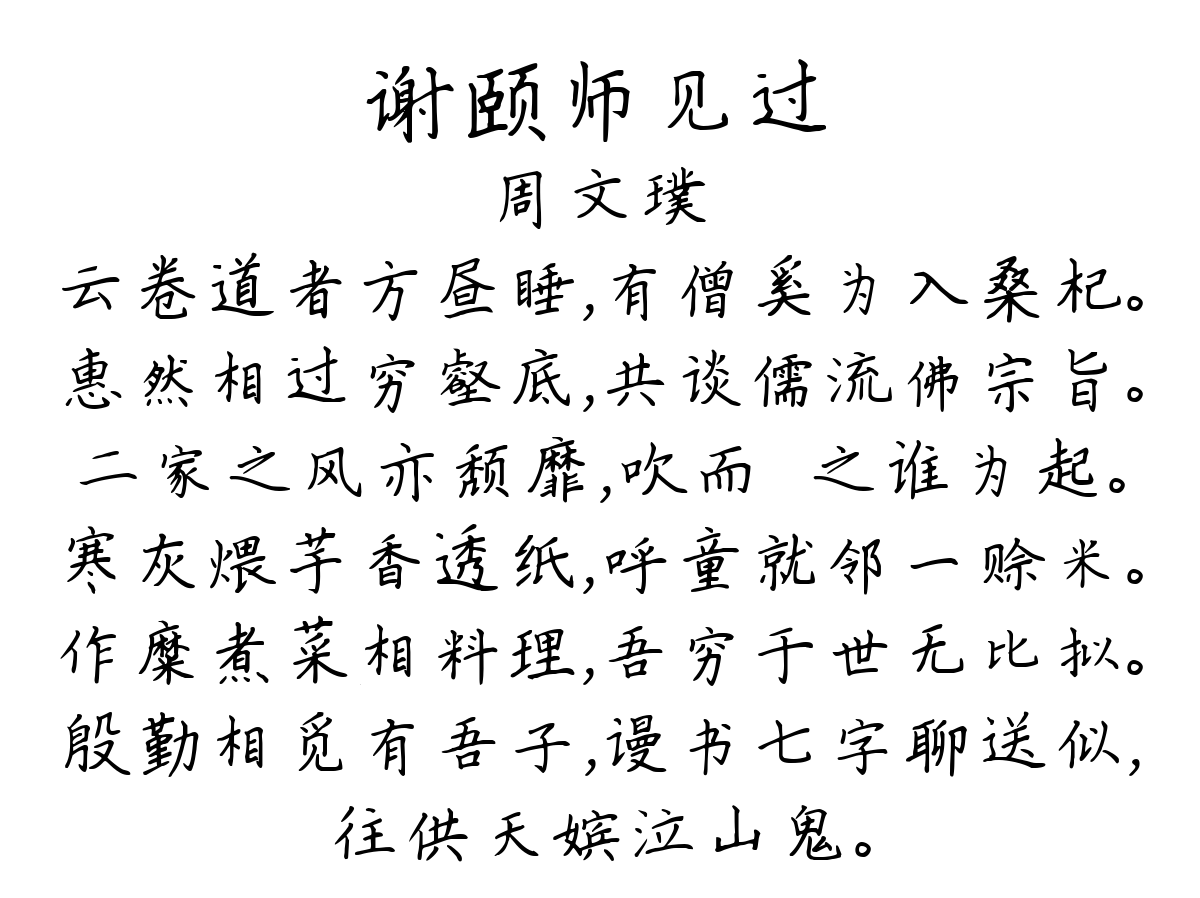 谢颐师见过
周文璞
云卷道者方昼睡,有僧奚为入桑杞。
惠然相过穷壑底,共谈儒流佛宗旨。
二家之风亦颓靡,吹而 之谁为起。
寒灰煨芋香透纸,呼童就邻一赊米。
作糜煮菜相料理,吾穷于世无比拟。
殷勤相觅有吾子,谩书七字聊送似,
往供天嫔泣山鬼。